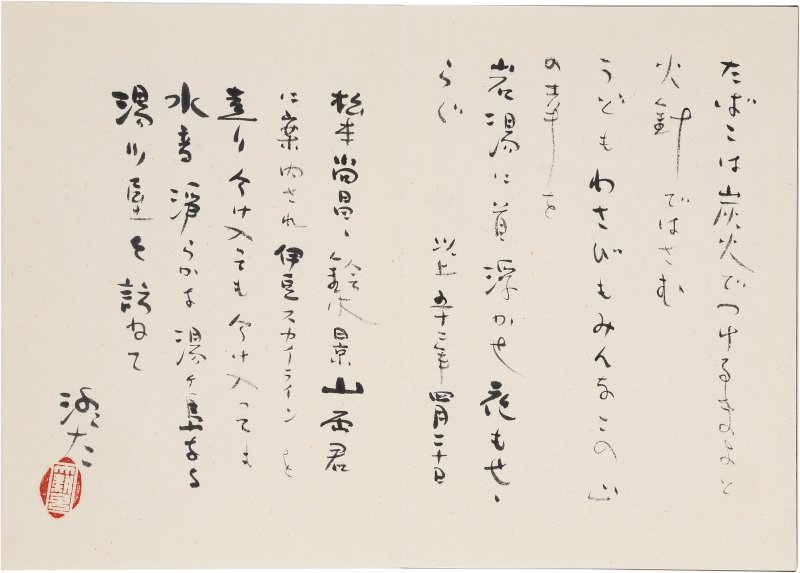 たばこは炭火でつける
火針ではさむ
うどもわさびもみんなこの山
の
岩湯に首浮かせ花もせゝ
らぐ
以上 五十二年四月二十日
松本尚昌、鈴木景山両君
に案内され伊豆スカイラインを
走り分け入っても分け入っても
水音浄らかな湯ヶ島なる
湯川屋を訪ねて